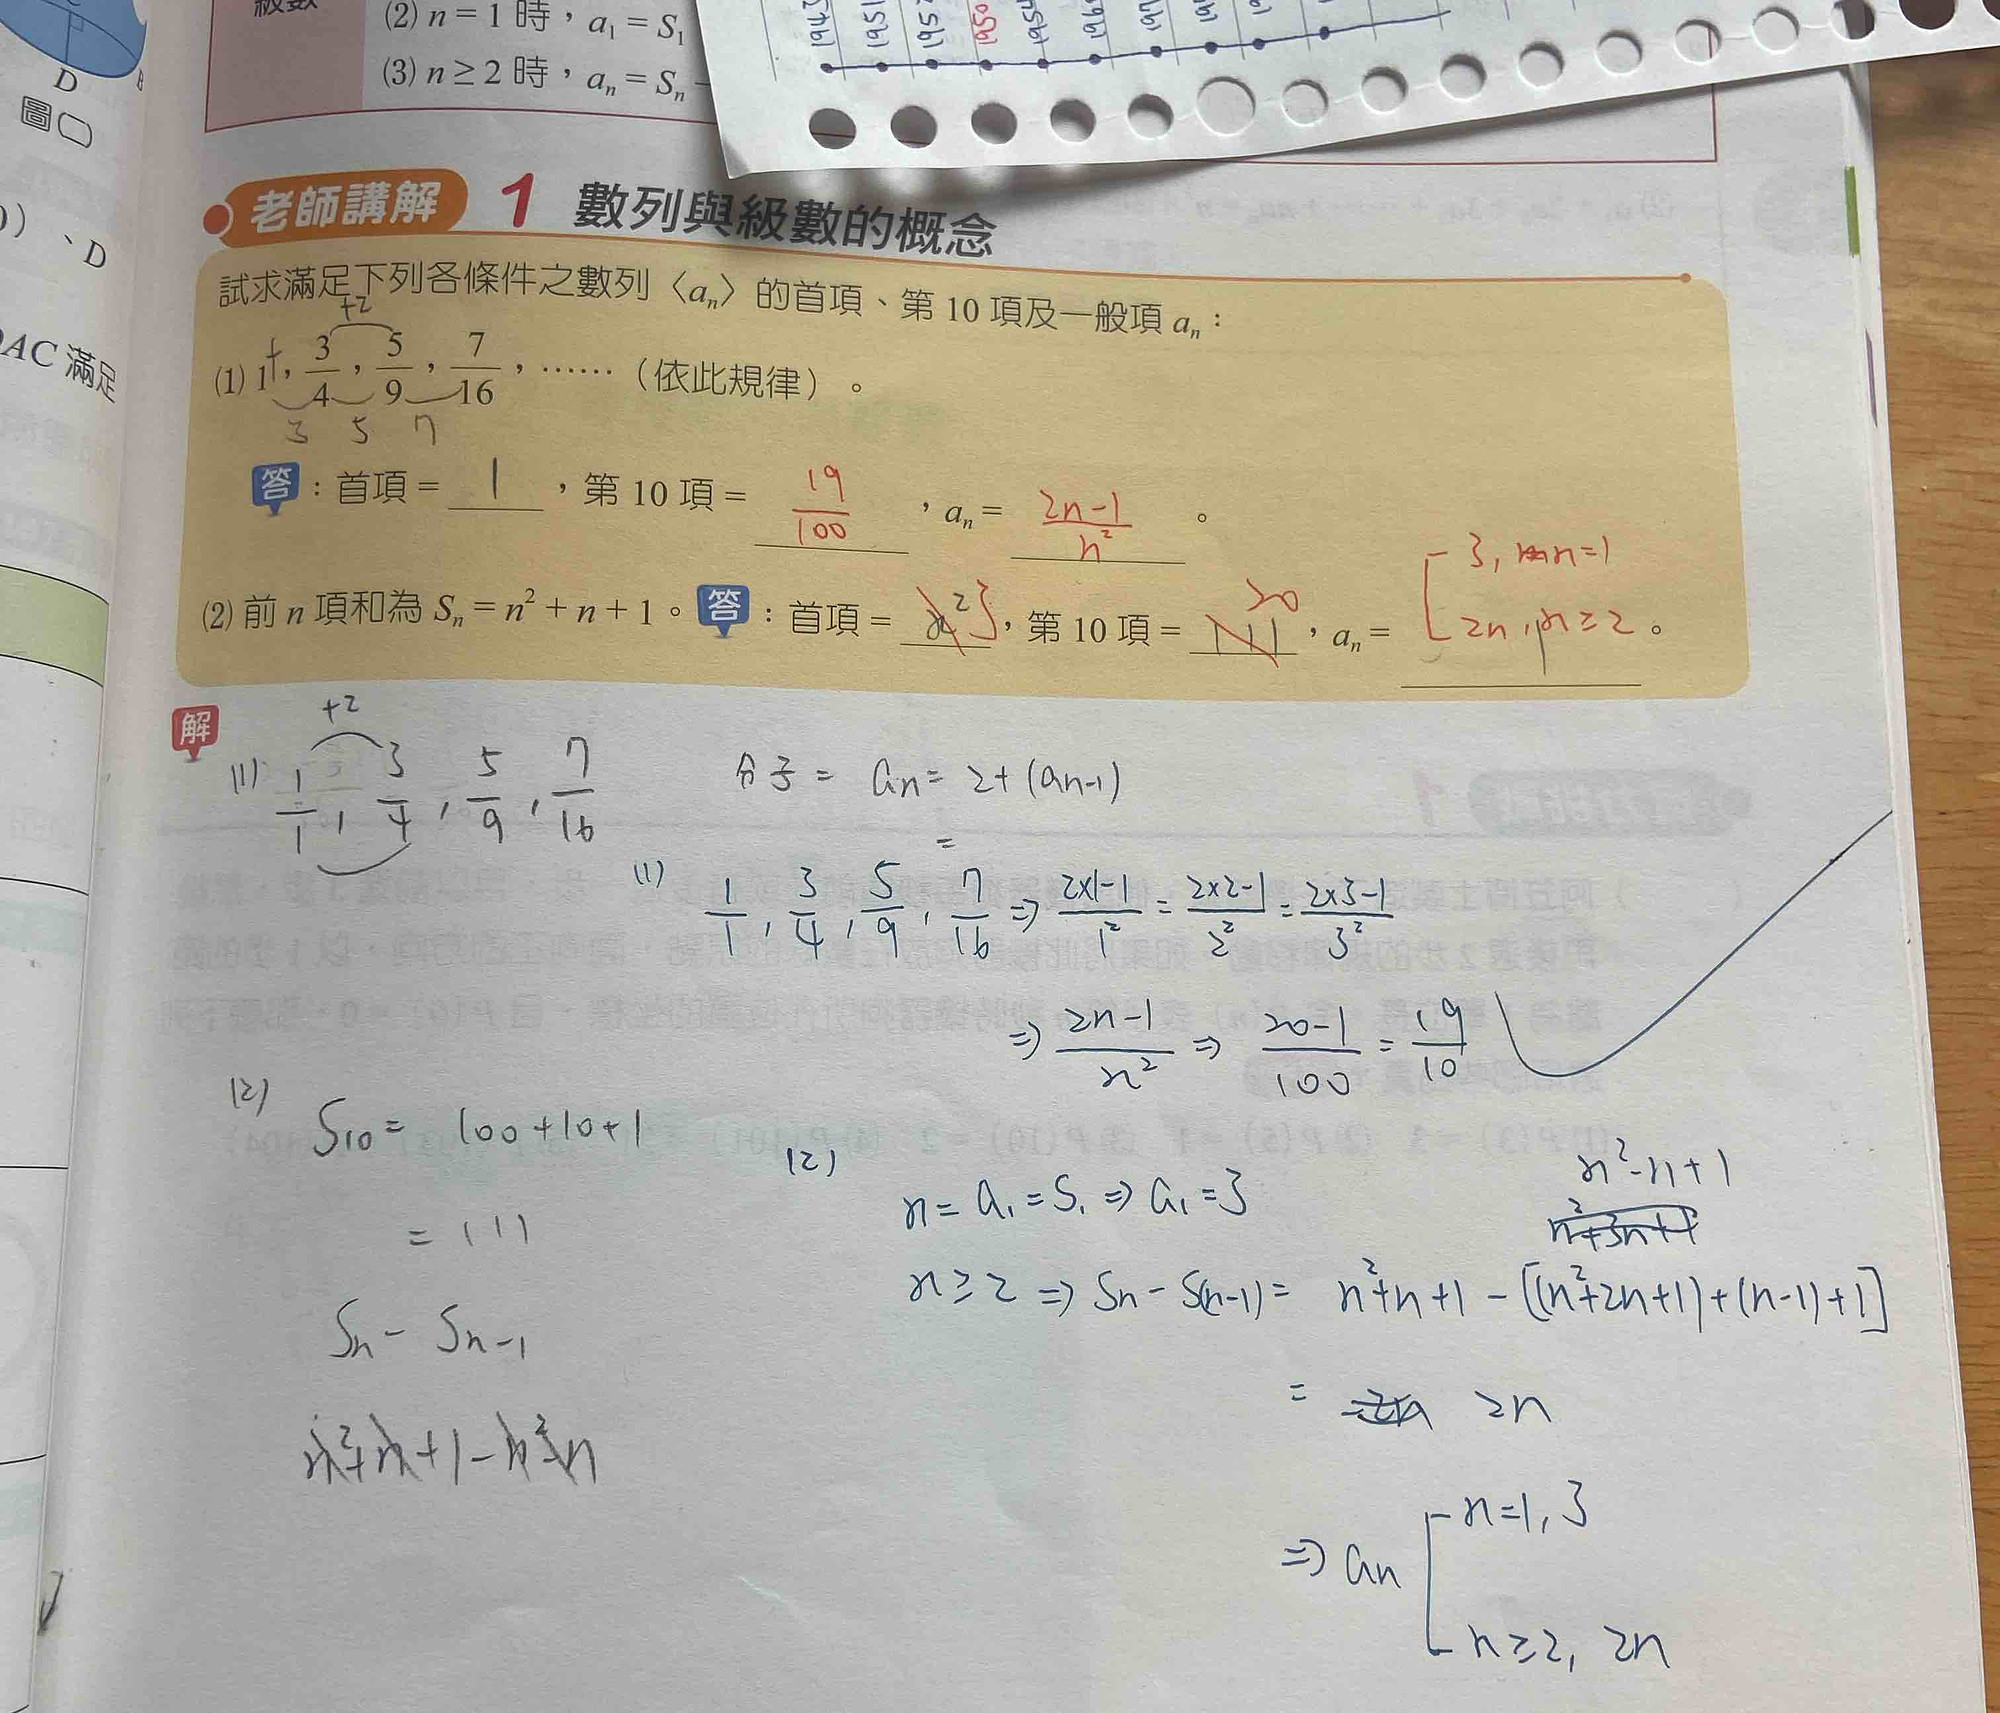 級數
(2) n = 1 時，a₁ = S₁
(3) n ≥ 2 時，aₙ = Sₙ −
1943 1951 1950 1954
D
圖
D
AC 滿足
老師講解 1 數列與級數的概念
試求滿足下列各條件之數列〈aₙ〉的首項、第 10 項及一般項 aₙ：
+2
(1) 1, 3/4, 5/9, 7/16, ……（依此規律）。
3 5 7
答：首項 = 1，第 10 項 = 19/100，aₙ = (2n-1)/n²。
(2) 前 n 項和為 Sₙ = n² + n + 1。答：首項 = 3，第 10 項 = 20，aₙ = 3, n=1
2n, n≥2。
解
+2
(1) 1/1, 3/4, 5/9, 7/16
分子 = an = 2+(an-1)
=
(1) 1/1, 3/4, 5/9, 7/16 ⇒ (2×1-1)/1² = (2×2-1)/2² = (2×3-1)/3²
⇒ (2n-1)/n² ⇒ (20-1)/100 = 19/10
(2) S10 = 100+10+1
= 111
Sn - Sn-1
n²+n+1-n²-n
(2) n = a₁ = S₁ ⇒ a₁ = 3
n²-n+1
n²+3n+1
n≥2 ⇒ Sn - S(n-1) = n²+n+1 - [(n²+2n+1)+(n-1)+1]
= 2n
⇒ an n=1, 3
n≥2, 2n